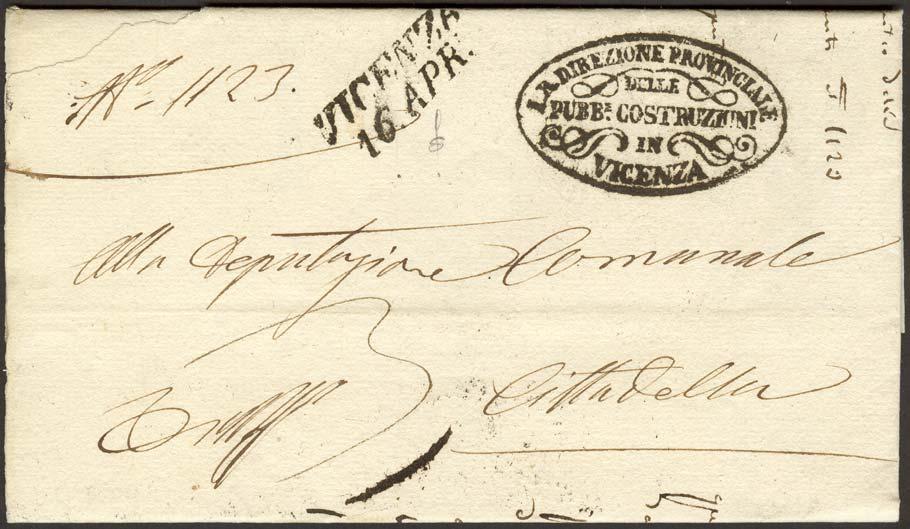 N. 1123.
VICENZA
16 APR.
I. R. DIREZIONE PROVINCIALE
DELLE
PUBB.E COSTRUZIONI
IN
VICENZA
Alla Deputazione Comunale
Cittadella
1123